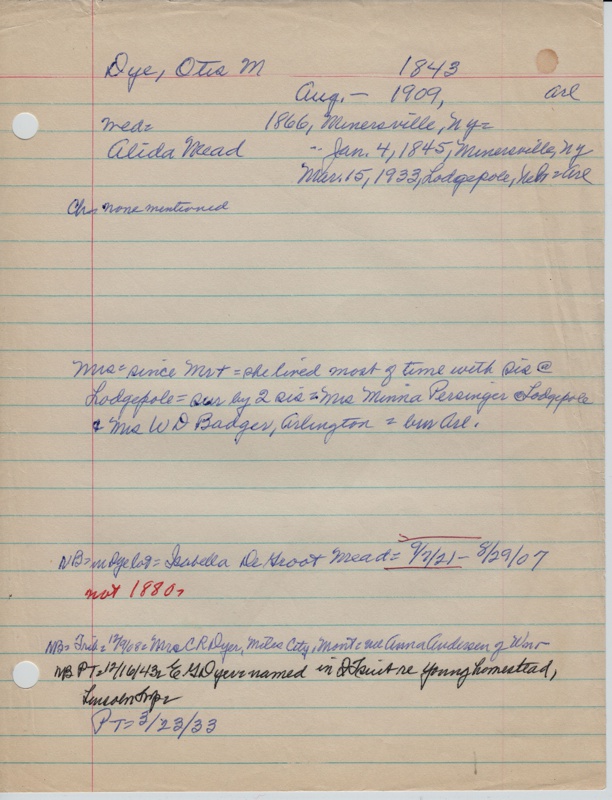 Dye, Otis M 1843
Aug. — 1909, arl
wed = 1866, Minersville, Ny =
Alida Mead -- Jan. 4, 1845, Minersville, Ny
Mar. 15, 1933, Lodgepole, Neb = Arl
Ch = none mentioned
Mrs = since Mr + = she lived most of time with sis @
Lodgepole = sur by 2 sis = Mrs Minna Persinger @ Lodgepole
& Mrs W D Badger, Arlington = bur Arl.
NB = in Dye lot = Isabella De Groot Mead = 9/7/21 — 8/29/07
not 1880.
NB = Trib = 12/9/08 = Mrs C R Dyer, Miles City, Mont = nee Anna Andersen of
NB PT = 12/16/43 = E G Dyer = named in suit re Young homestead,
Lincoln twp =
PT = 3/23/33